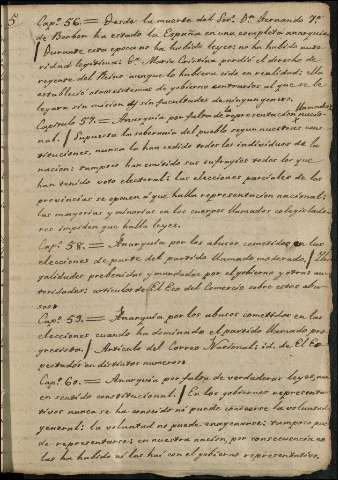 5
Cap.º 56. = Desde la muerte del Sor. Dn. Fernando 7º
de Borbon ha estado la España en una completa anarquia
Durante esta epoca no ha habido leyes: no ha habido auto-
ridad legitima: Dª. Maria Cristina perdió el derecho de
regente del Reino aunque lo hubiera sido en realidad: ella
estableció otros sistemas de gobierno contrarios al que se le
legara sin mision y sin facultades de ningun genero.
Capitulo 57. = Anarquia por falta de representacion la llamada nacio-
nal. Supuesta la soberania del pueblo segun nuestras cons-
tituciones, nunca la han cedido todos los individuos de la
nacion: tampoco han emitido sus sufragios todos los que
han tenido voto electoral: las elecciones parciales de las
provincias se oponen á que halla representacion nacional:
las mayorias y minorias en los cuerpos llamados colegislado-
res impiden que halla leyes.
Cap.º 58. = Anarquia por los abusos cometidos en las
elecciones de parte del partido llamado moderado. Ile-
galidades prebenidas y mandadas por el gobierno y otras au-
toridades: articulos de El Eco del Comercio sobre estos abu-
sos.
Cap.º 59. = Anarquia por los abusos cometidos en las
elecciones cuando ha dominado el partido llamado pro-
gresista. Articulo del Correo Nacional; id. de El Es-
pectador en distintos numeros.
Cap.º 60. = Anarquia por falta de verdaderas leyes, aun
en sentido constitucional. En los gobiernos representa-
tivos nunca se ha conocido ni puede conocerse la voluntad
general: la voluntad no puede enagenarse: tampoco pue-
de representarse: en nuestra nacion, por consecuencia no
las ha habido ni las hai con el gobierno representativo.